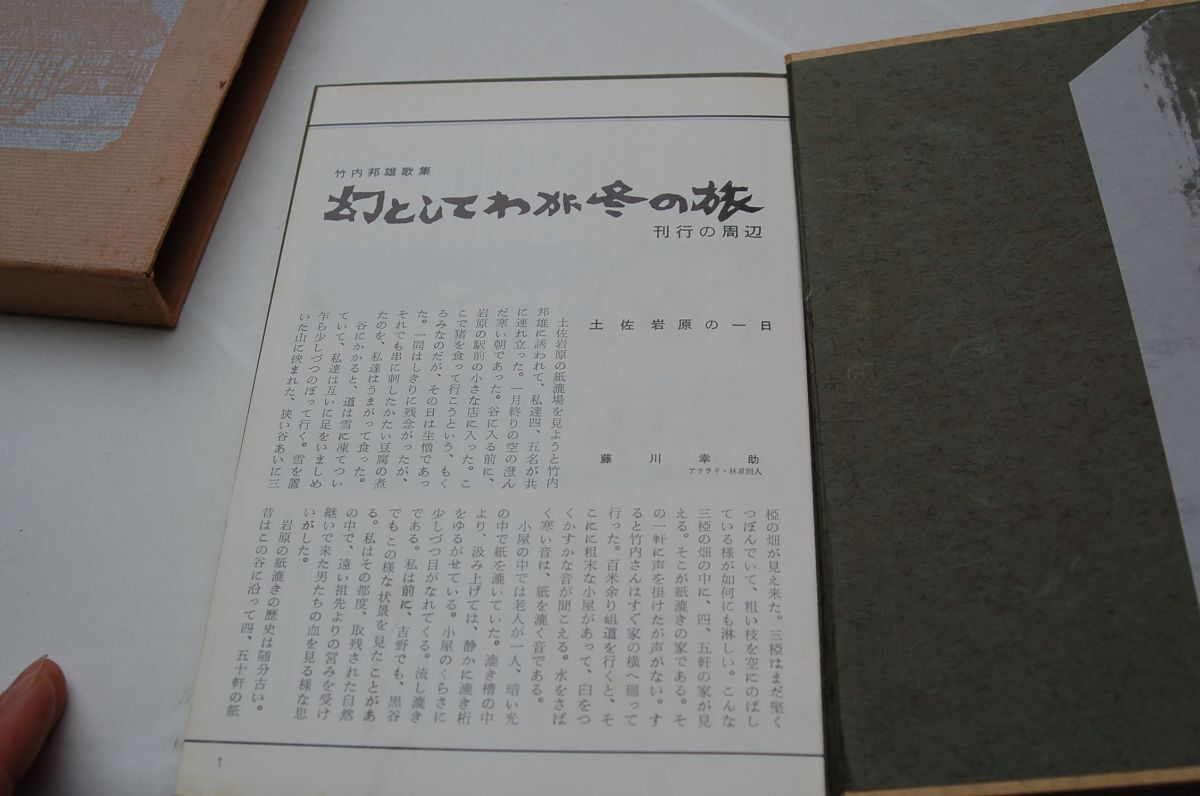 竹内邦雄歌集
幻としてわが冬の旅
刊行の周辺
土佐岩原の一日
藤川幸助
アララギ・林泉同人
土佐岩原の紙漉場を見ようと竹内
邦雄に誘われて、私達四、五名が共
に連れ立った。一月終りの空の澄ん
だ寒い朝であった。谷に入る前に、
岩原の駅前の小さな店に入った。こ
こで猪を食って行こうという、もく
ろみなのだが、その日は生憎であっ
た。一同はしきりに残念がったが、
それでも串に刺したかたい豆腐の煮
たのを、私達はうまがって食った。
谷にかかると、道は雪に凍てつい
ていて、私達は互いに足をいましめ
乍ら少しづつのぼって行く。雪を置
いた山に挟まれた、狭い谷あいに三
椏の畑が見え来た。三椏はまだ堅く
つぼんでいて、粗い枝を空にのばし
ている様が如何にも淋しい。こんな
三椏の畑の中に、四、五軒の家が見
える。そこが紙漉きの家である。そ
の一軒に声を掛けたが声がない。す
ると竹内さんはすぐ家の横へ廻って
行った。百米余り岨道を行くと、そ
こにに粗末な小屋があって、臼をつ
くかすかな音が聞こえる。水をさば
く寒い音は、紙を漉く音である。
小屋の中では老人が一人、暗い光
の中で紙を漉いていた。漉き槽の中
より、汲み上げては、静かに漉き桁
をゆるがせている。小屋のくらさに
少しづつ目がなれてくる。流し漉き
である。私は前に、吉野でも、黒谷
でもこの様な状景を見たことがあ
る。私はその都度、取残された自然
の中で、遠い祖先よりの営みを受け
継いで来た男たちの血を見る様な思
いがした。
岩原の紙漉きの歴史は随分古い。
昔はこの谷に沿って四、五十軒の紙
1